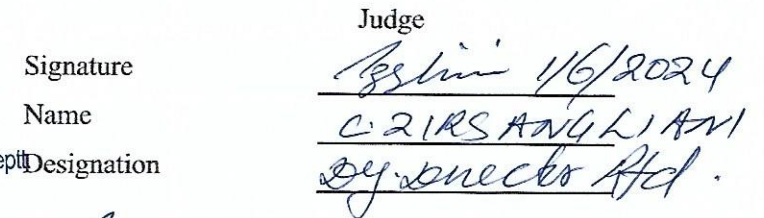 Judge
Signature 1/6/2024
Name C. ZIRSANGLIANI
eptt Designation Dy. Director Rtd.